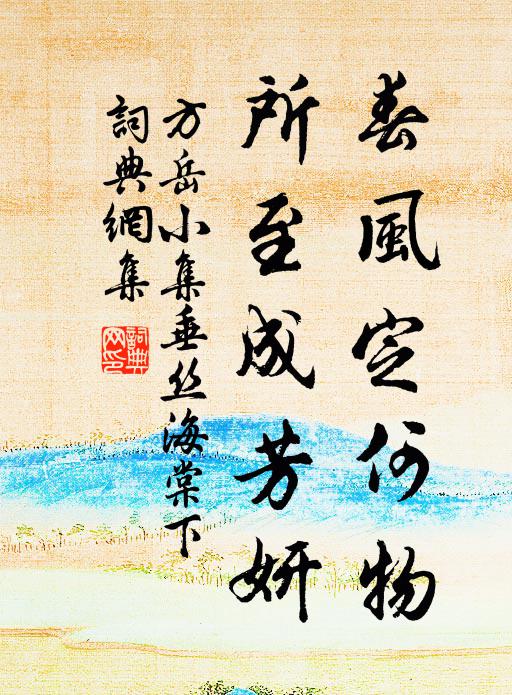 春風定何物
所至成芳妍
方岳小集垂丝海棠下
詞典網集
詞典網印